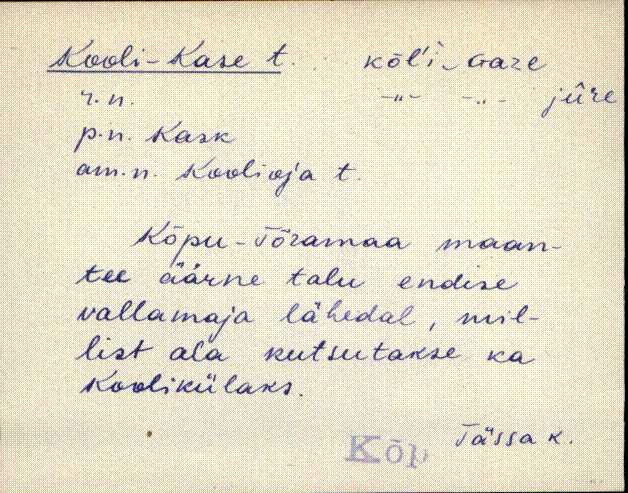 Kooli-Kase t. kōl'i-Gaze
r.n. -"- -"- jũre
p.n. Kask
am.n. Koolioja t.
Kõpu-Tõramaa maan-
tee äärne talu endise
vallamaja lähedal, mil-
list ala kutsutakse ka
Koolikülaks.
Tässa k.
Kõp